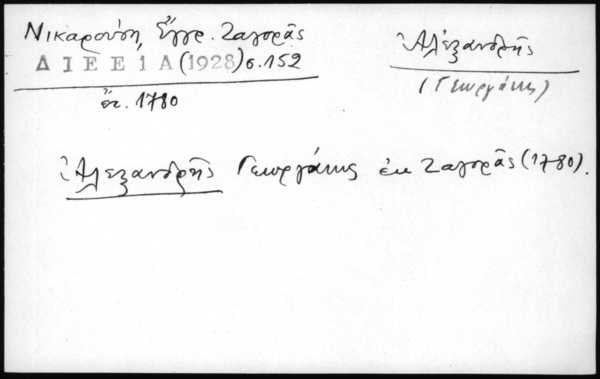 Νικαρούση, Ἔγγρ. Ζαγορᾶς
Δ Ι Ε Ε Ι Α (1928) σ. 152
ἔτ. 1780
Ἀλεξανδρῆς
(Γεωργάκης)
Ἀλεξανδρῆς Γεωργάκης ἐκ Ζαγορᾶς (1780).